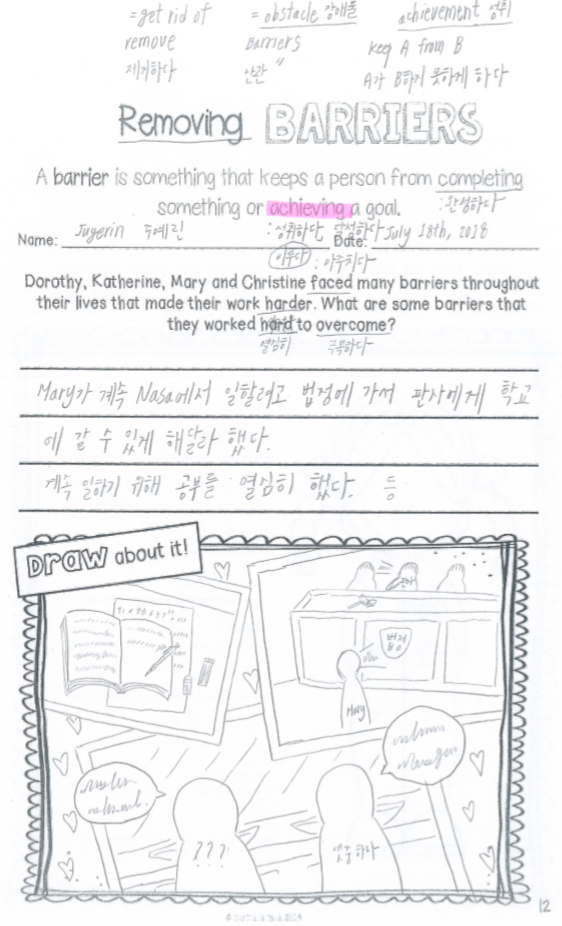 =get rid of =obstacle 장애물 achievement 성취
remove Barriers keep A from B
제거하다 A가 B하기 못하게 하다
Removing BARRIERS
A barrier is something that keeps a person from completing
:완성하다
something or achieving a goal.
:성취하다, 달성하다
Name: Jugerin 주예린 Date: July 18th, 2018
이루다 :마주치다
Dorothy, Katherine, Mary and Christine faced many barriers throughout
their lives that made their work harder. What are some barriers that
they worked hard to overcome?
열심히 극복하다
Mary가 계속 Nasa에서 일할려고 법정에 가서 판사에게 학교
에 갈 수 있게 해달라 했다.
계속 일하기 위해 공부를 열심히 했다. 등
DRAW about it!
법정
Mary
???
12